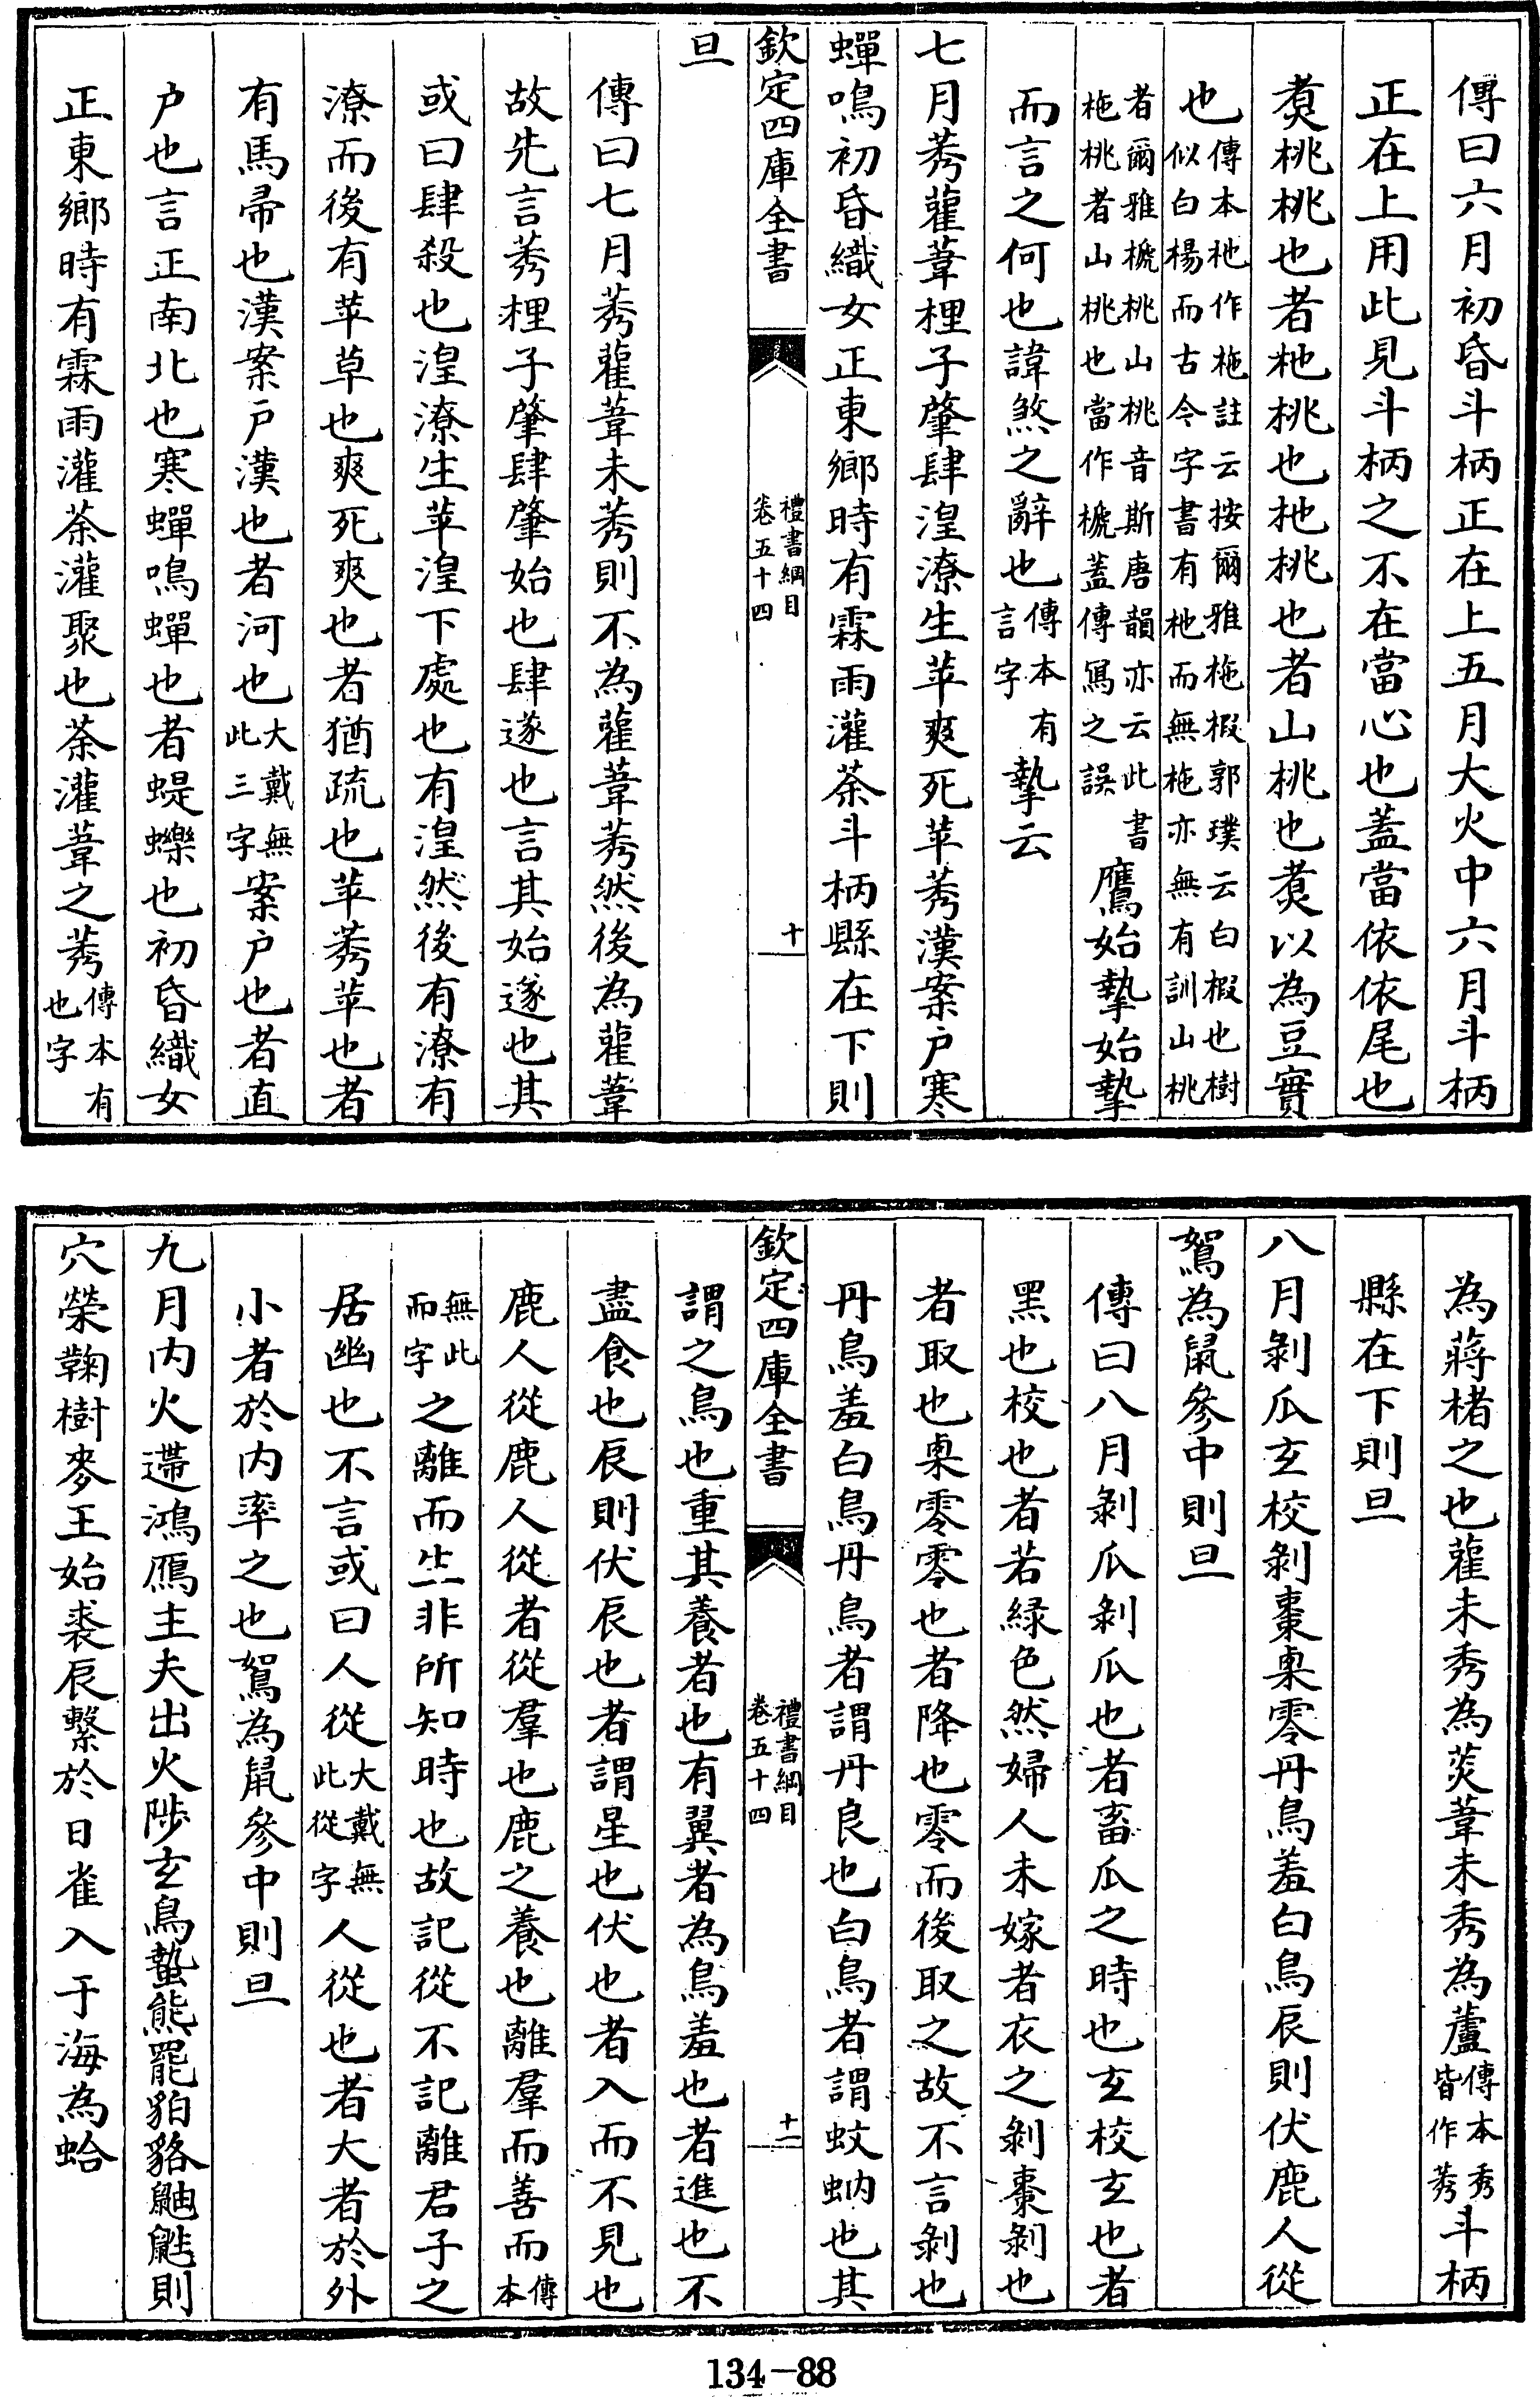 傳曰六月初昏斗柄正在上五月大火中六月斗柄
正在上用此見斗柄之不在當心也蓋當依依尾也
煑桃桃也者杝桃也杝桃也者山桃也煑以為豆實
也傳本杝作柂註云按爾雅柂椵郭璞云白椵也樹
似白楊而古今字書有杝而無柂亦無有訓山桃
者爾雅榹桃山桃音斯唐韻亦云此書
柂桃者山桃也當作榹蓋傳寫之誤鷹始摯始摯
而言之何也諱煞之辭也傳本有言字摯云
七月莠雚葦狸子肇肆湟潦生苹爽死苹莠漢案户寒
蟬鳴初昏織女正東鄉時有霖雨灌荼斗柄縣在下則
欽定四庫全書
禮書綱目
卷五十四
十
旦
傳曰七月莠雚葦未莠則不為雚葦莠然後為雚葦
故先言莠狸子肇肆肇始也肆遂也言其始遂也其
或曰肆殺也湟潦生苹湟下處也有湟然後有潦有
潦而後有苹草也爽死爽也者猶疏也苹莠苹也者
有馬帚也漢案户漢也者河也大戴無此三字案户也者直
户也言正南北也寒蟬鳴蟬也者蝭蠑也初昏織女
正東鄉時有霖雨灌荼灌聚也荼灌葦之莠傳本有也字
為蔣楮之也雚未秀為菼葦未秀為蘆傳本秀皆作莠斗柄
縣在下則旦
八月剝瓜玄校剝棗㮚零丹鳥羞白鳥辰則伏鹿人從
鴽為鼠參中則旦
傳曰八月剝瓜剝瓜也者畜瓜之時也玄校玄也者
黑也校也者若緑色然婦人未嫁者衣之剝棗剝也
者取也㮚零零也者降也零而後取之故不言剝也
丹鳥羞白鳥丹鳥者謂丹良也白鳥者謂蚊蚋也其
欽定四庫全書
禮書綱目
卷五十四
十一
謂之鳥也重其養者也有翼者為鳥羞也者進也不
盡食也辰則伏辰也者謂星也伏也者入而不見也
鹿人從鹿人從者從羣也鹿之養也離羣而善而傳本
無此而字之離而生非所知時也故記從不記離君子之
居幽也不言或曰人從大戴無此從字人從也者大者於外
小者於内率之也鴽為鼠參中則旦
九月内火遰鴻鴈主夫出火陟玄鳥蟄熊羆貊貉鼬鼪則
穴榮鞠樹麥王始裘辰繫於日雀入于海為蛤
134-88